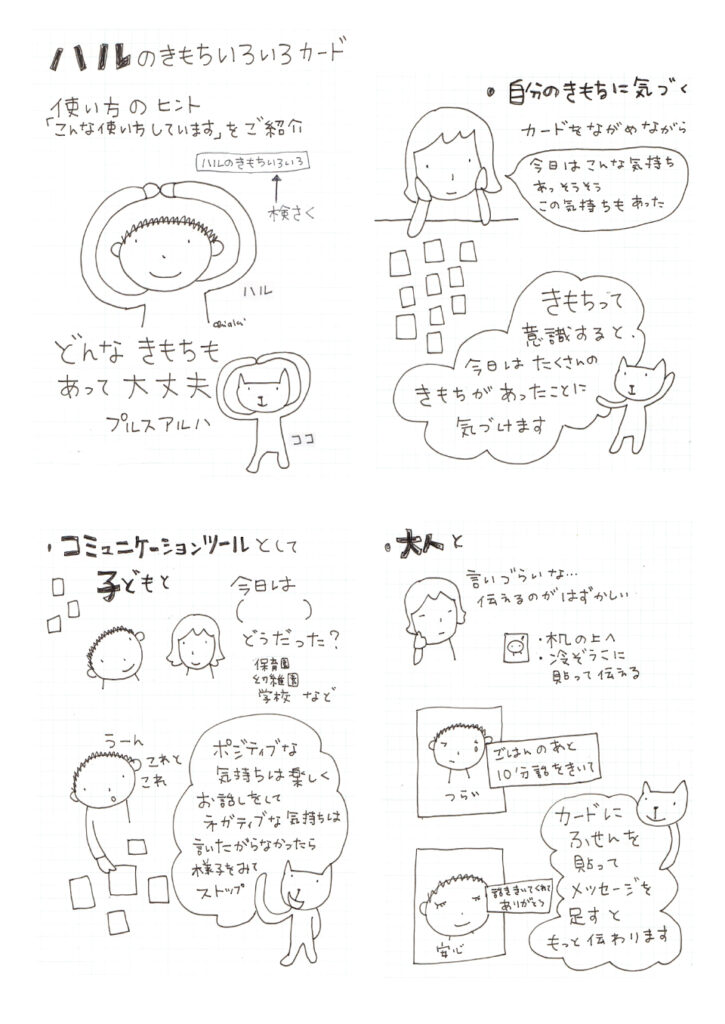 ハルのきもちいろいろカード
使い方のヒント
「こんな使い方しています」をご紹介
ハルのきもちいろいろ
検さく
ハル
どんな きもちも
あって 大丈夫
プルスアルハ
ココ
・自分のきもちに気づく
カードをながめながら
今日は こんな気持ち
あっそうそう
この気持ちもあった
きもちって
意識すると、
今日は たくさんの
きもちが あったことに
気づけます
・コミュニケーションツールとして
子どもと
今日は
(　　　)
どうだった?
保育園
幼稚園
学校 など
うーん
これと
これ
ポジティブな
気持ちは楽しく
お話しをして
ネガティブな気持ちは
言いたがらなかったら
様子をみて
ストップ
・大人と
言いづらいな…
伝えるのがはずかしい
・机の上へ
・冷ぞうこに
貼って伝える
ごはんのあと
10分話をきいて
つらい
カードに
ふせんを
貼って
メッセージを
足すと
もっと伝わります
話をきいてくれて
ありがとう
安心